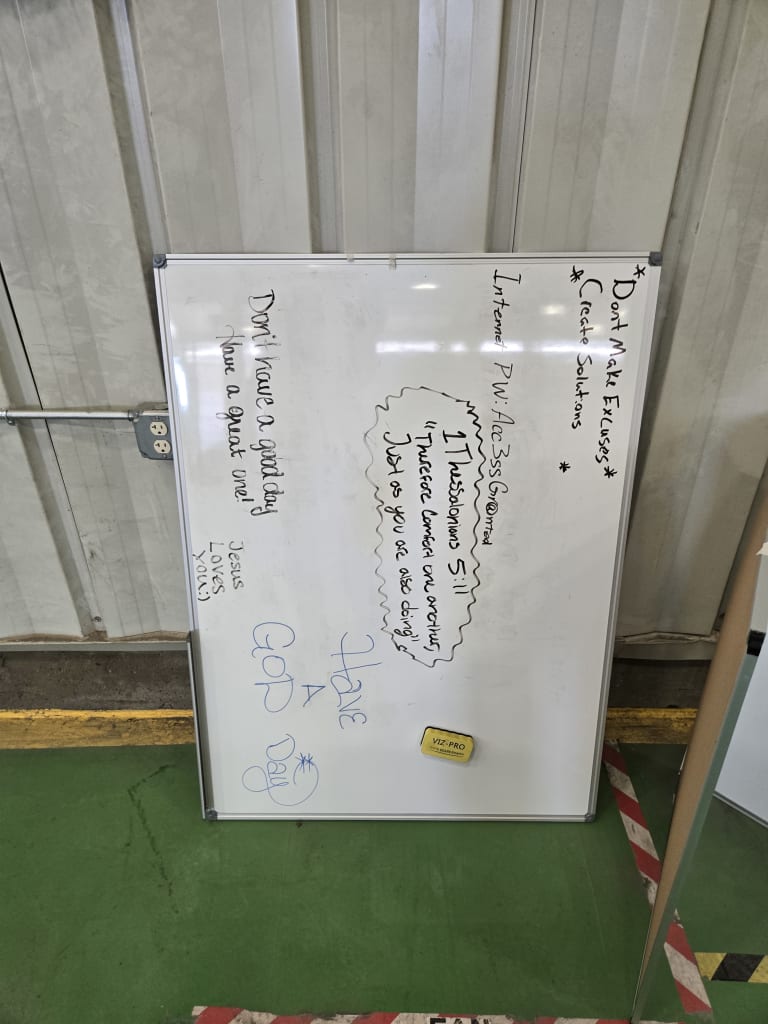 *Dont Make Excuses*
* Create Solutions *
Internet PW: Acc3ssGr@nted
1 Thessalonians 5:11
"Therefore Comfort one another,
Just as you are also doing"
VIZ-PRO
HAVE
A
GOD Day
Don't have a good day
Have a great one!
Jesus
Loves
you:)